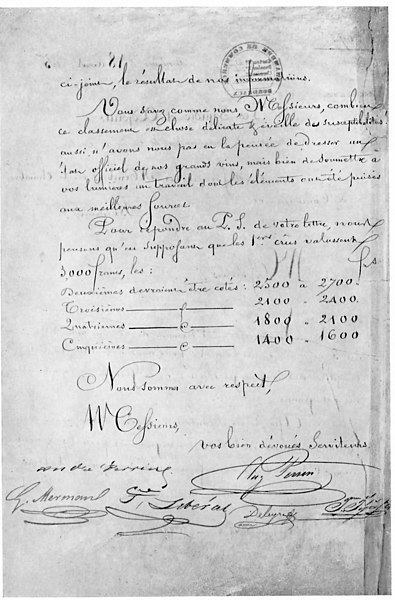 ci-joint, le résultat de nos informations.
Vous savez comme nous Messieurs, combien
ce classement est chose délicate & éveille des susceptibilités
aussi n'avons nous pas eu la pensée de dresser un
état officiel de nos grands vins, mais bien de soumettre à
vos lumières un travail dont les éléments ont été puisés
aux meilleures sources.
Pour répondre au P. S. de votre lettre, nous
pensons qu'en supposant que les 1ers crûs valussent
3000 francs, les :
Deuxièmes devraient être cotés : 2500 à 2700. fs
Troisièmes 2100 " 2400
Quatrièmes 1800 " 2100
Cinquièmes 1400 " 1600
Nous sommes avec respect,
Messieurs,
Vos bien dévoués Serviteurs,
G. Mermann
Libéral
Perrin